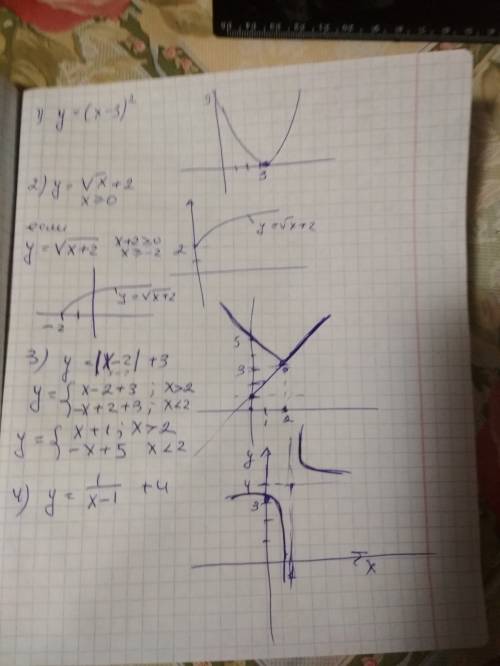 1) y = (x-3)²
9
3
2) y = √x + 2
x ≥ 0
если
y = √(x+2)   x+2 ≥ 0
x ≥ -2
2
y = √x+2
y = √(x+2)
-2
3) y = |x-2| + 3
y = { x-2+3 ; x>2
-x+2+3 ; x<2
y = { x+1 ; x>2
-x+5   x<2
5
3
1
2
4) y = 1/(x-1) + 4
y
4
3
1
x